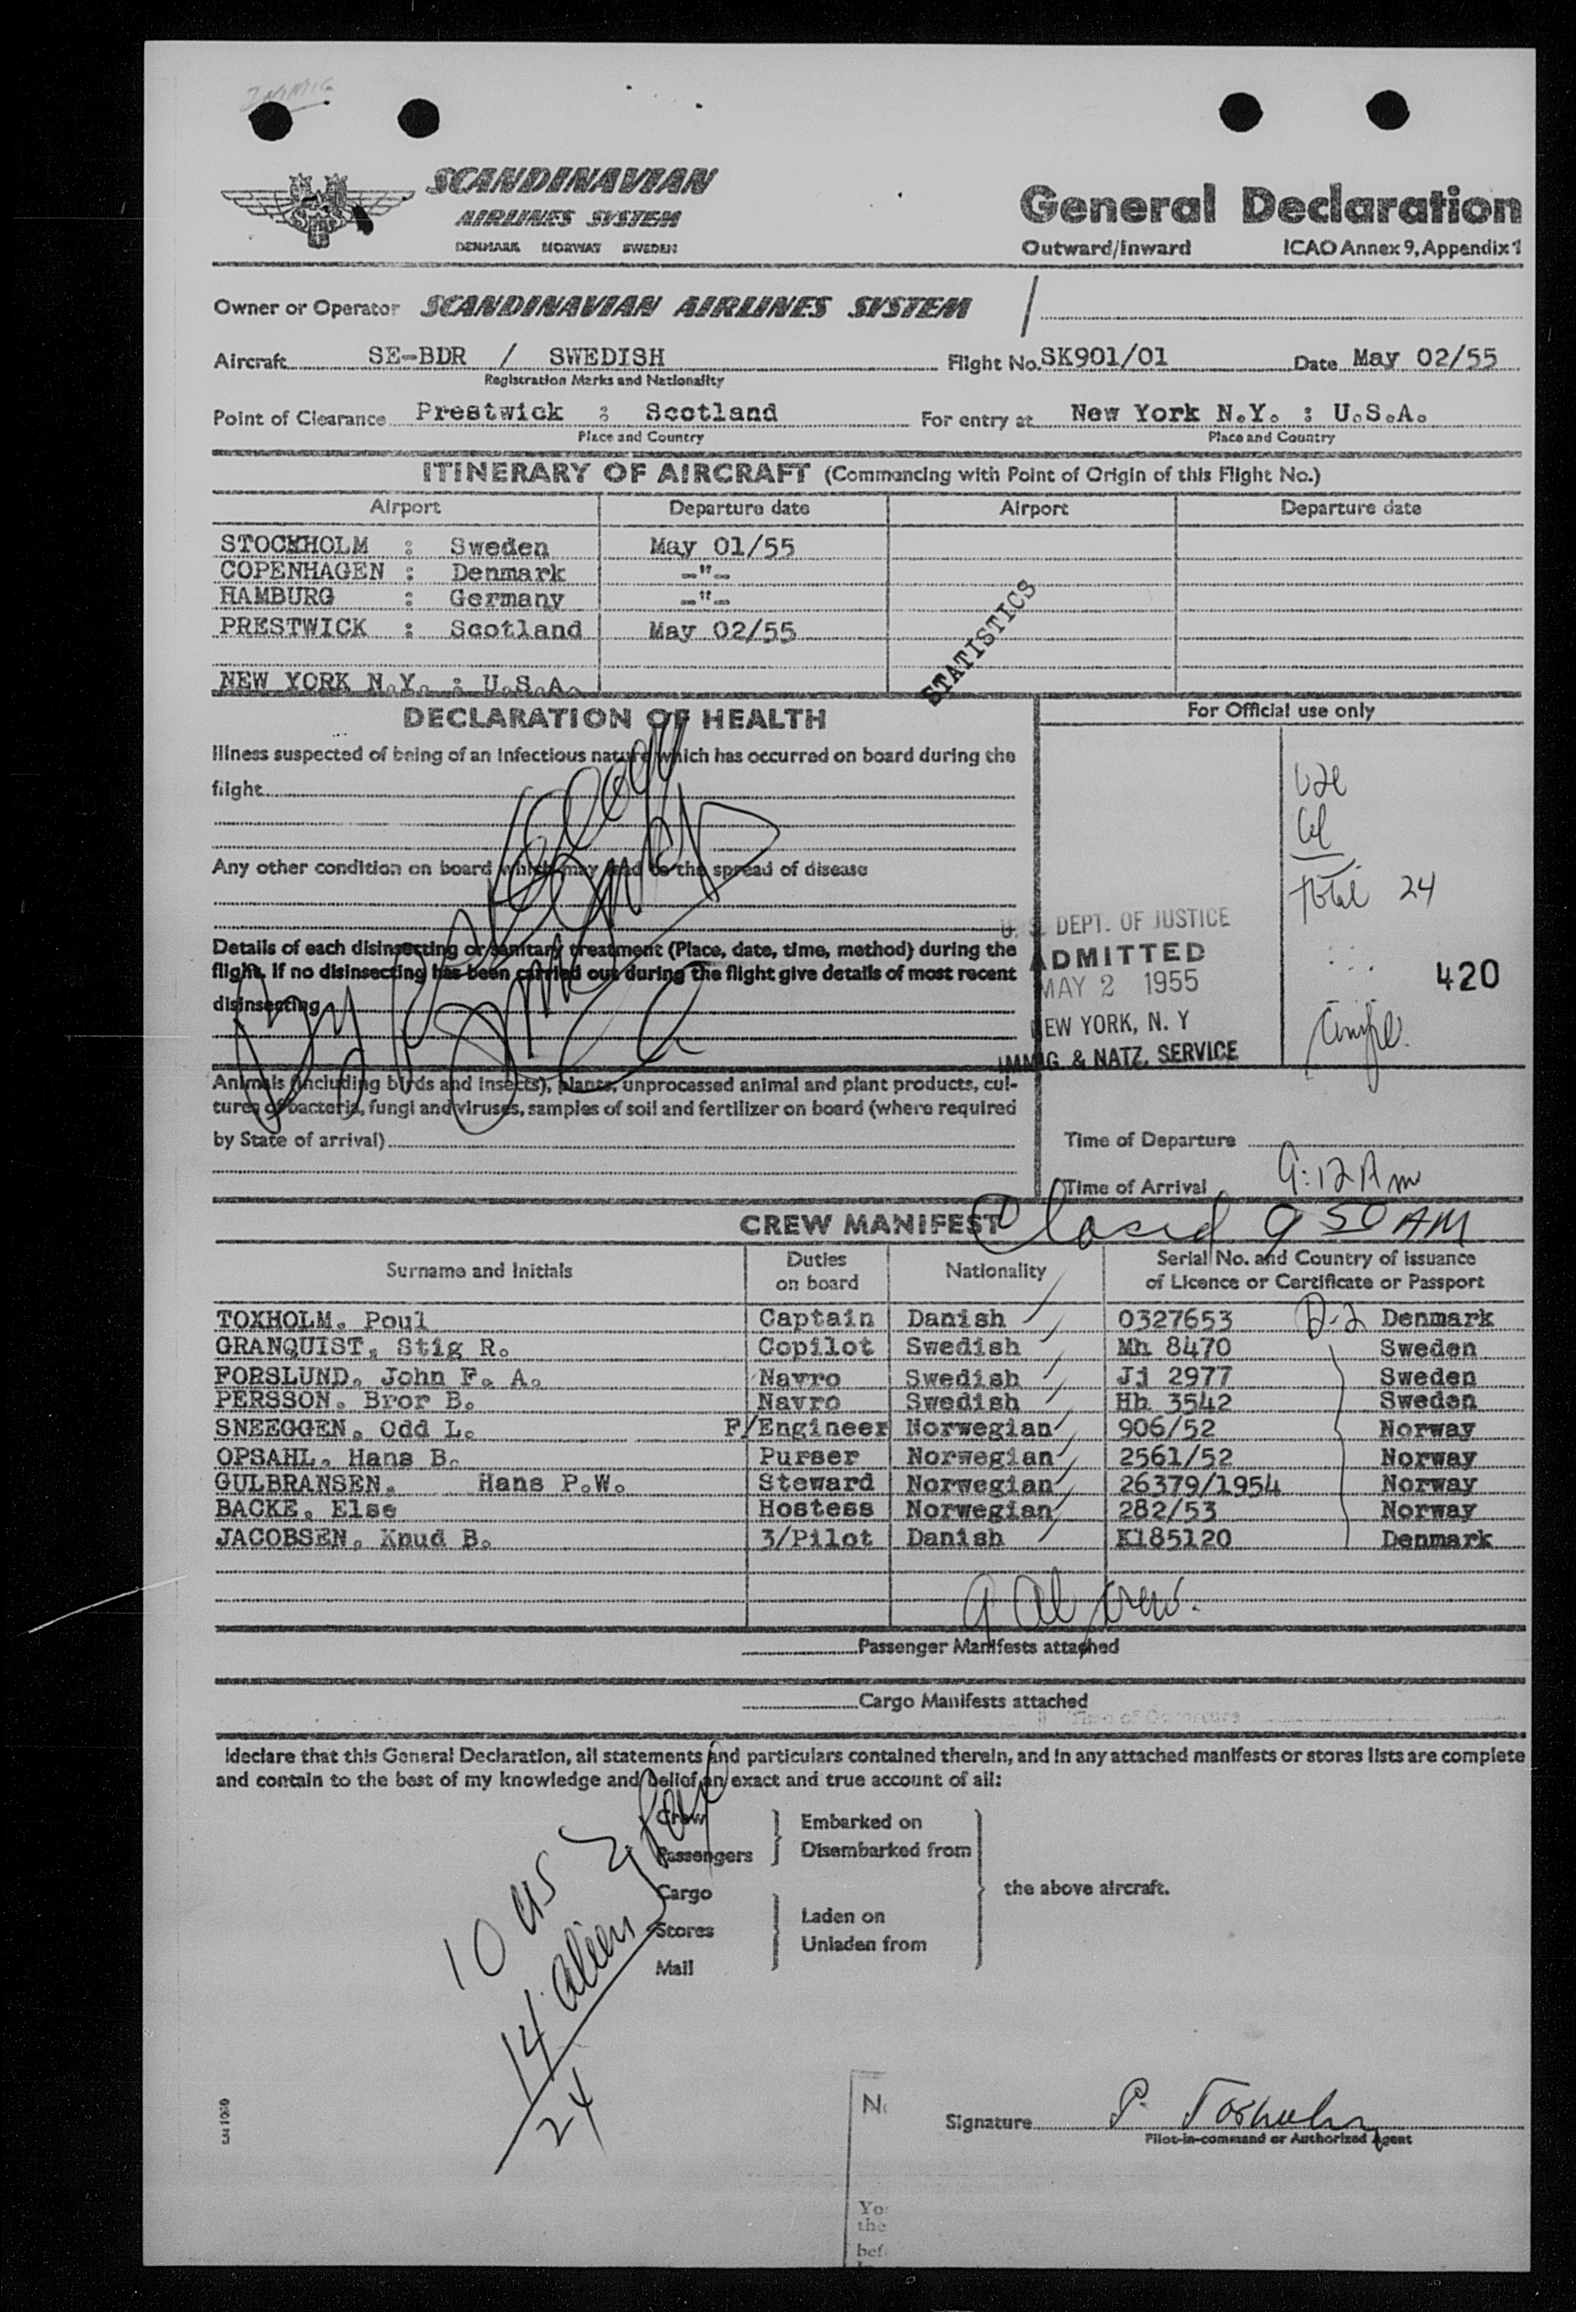 INMIG
SCANDINAVIAN
AIRLINES SYSTEM
DENMARK NORWAY SWEDEN
General Declaration
Outward/Inward ICAO Annex 9, Appendix 1
Owner or Operator SCANDINAVIAN AIRLINES SYSTEM /
Aircraft SE-BDR / SWEDISH Flight No. SK901/01 Date May 02/55
Registration Marks and Nationality
Point of Clearance Prestwick : Scotland For entry at New York N.Y. : U.S.A.
Place and Country Place and Country
ITINERARY OF AIRCRAFT (Commencing with Point of Origin of this Flight No.)
Airport Departure date Airport Departure date
STOCKHOLM : Sweden May 01/55
COPENHAGEN : Denmark -"-
HAMBURG : Germany -"-
PRESTWICK : Scotland May 02/55
NEW YORK N.Y. : U.S.A.
STATISTICS
DECLARATION OF HEALTH
For Official use only
Illness suspected of being of an infectious nature which has occurred on board during the
flight
Any other condition on board which may lead to the spread of disease
Total 24
Details of each disinsecting or sanitary treatment (Place, date, time, method) during the
flight. If no disinsecting has been carried out during the flight give details of most recent
disinsecting
U. S. DEPT. OF JUSTICE
ADMITTED
MAY 2 1955
NEW YORK, N. Y
IMMIG. & NATZ. SERVICE
420
Animals (including birds and insects), plants, unprocessed animal and plant products, cul-
tures of bacteria, fungi and viruses, samples of soil and fertilizer on board (where required
by State of arrival)
Time of Departure
Time of Arrival 9:12 Am
Closed 9 50 AM
CREW MANIFEST
Surname and Initials Duties on board Nationality Serial No. and Country of issuance of Licence or Certificate or Passport
TOXHOLM, Poul Captain Danish 0327653 D-2 Denmark
GRANQUIST, Stig R. Copilot Swedish Mh 8470 Sweden
FORSLUND, John F. A. Navro Swedish Jj 2977 Sweden
PERSSON, Bror B. Navro Swedish Hh 3542 Sweden
SNEEGGEN, Odd L. F/Engineer Norwegian 906/52 Norway
OPSAHL, Hans B. Purser Norwegian 2561/52 Norway
GULBRANSEN, Hans P.W. Steward Norwegian 26379/1954 Norway
BACKE, Else Hostess Norwegian 282/53 Norway
JACOBSEN, Knud B. 3/Pilot Danish K185120 Denmark
9 al crew.
Passenger Manifests attached
Cargo Manifests attached
Time of Departure
I declare that this General Declaration, all statements and particulars contained therein, and in any attached manifests or stores lists are complete
and contain to the best of my knowledge and belief an exact and true account of all:
Crew
Passengers
Embarked on
Disembarked from
Cargo
Stores
Mail
Laden on
Unladen from
the above aircraft.
10 US
14 alien
24
Signature P. Toxholm
Pilot-in-command or Authorized Agent
Yo
the
bef